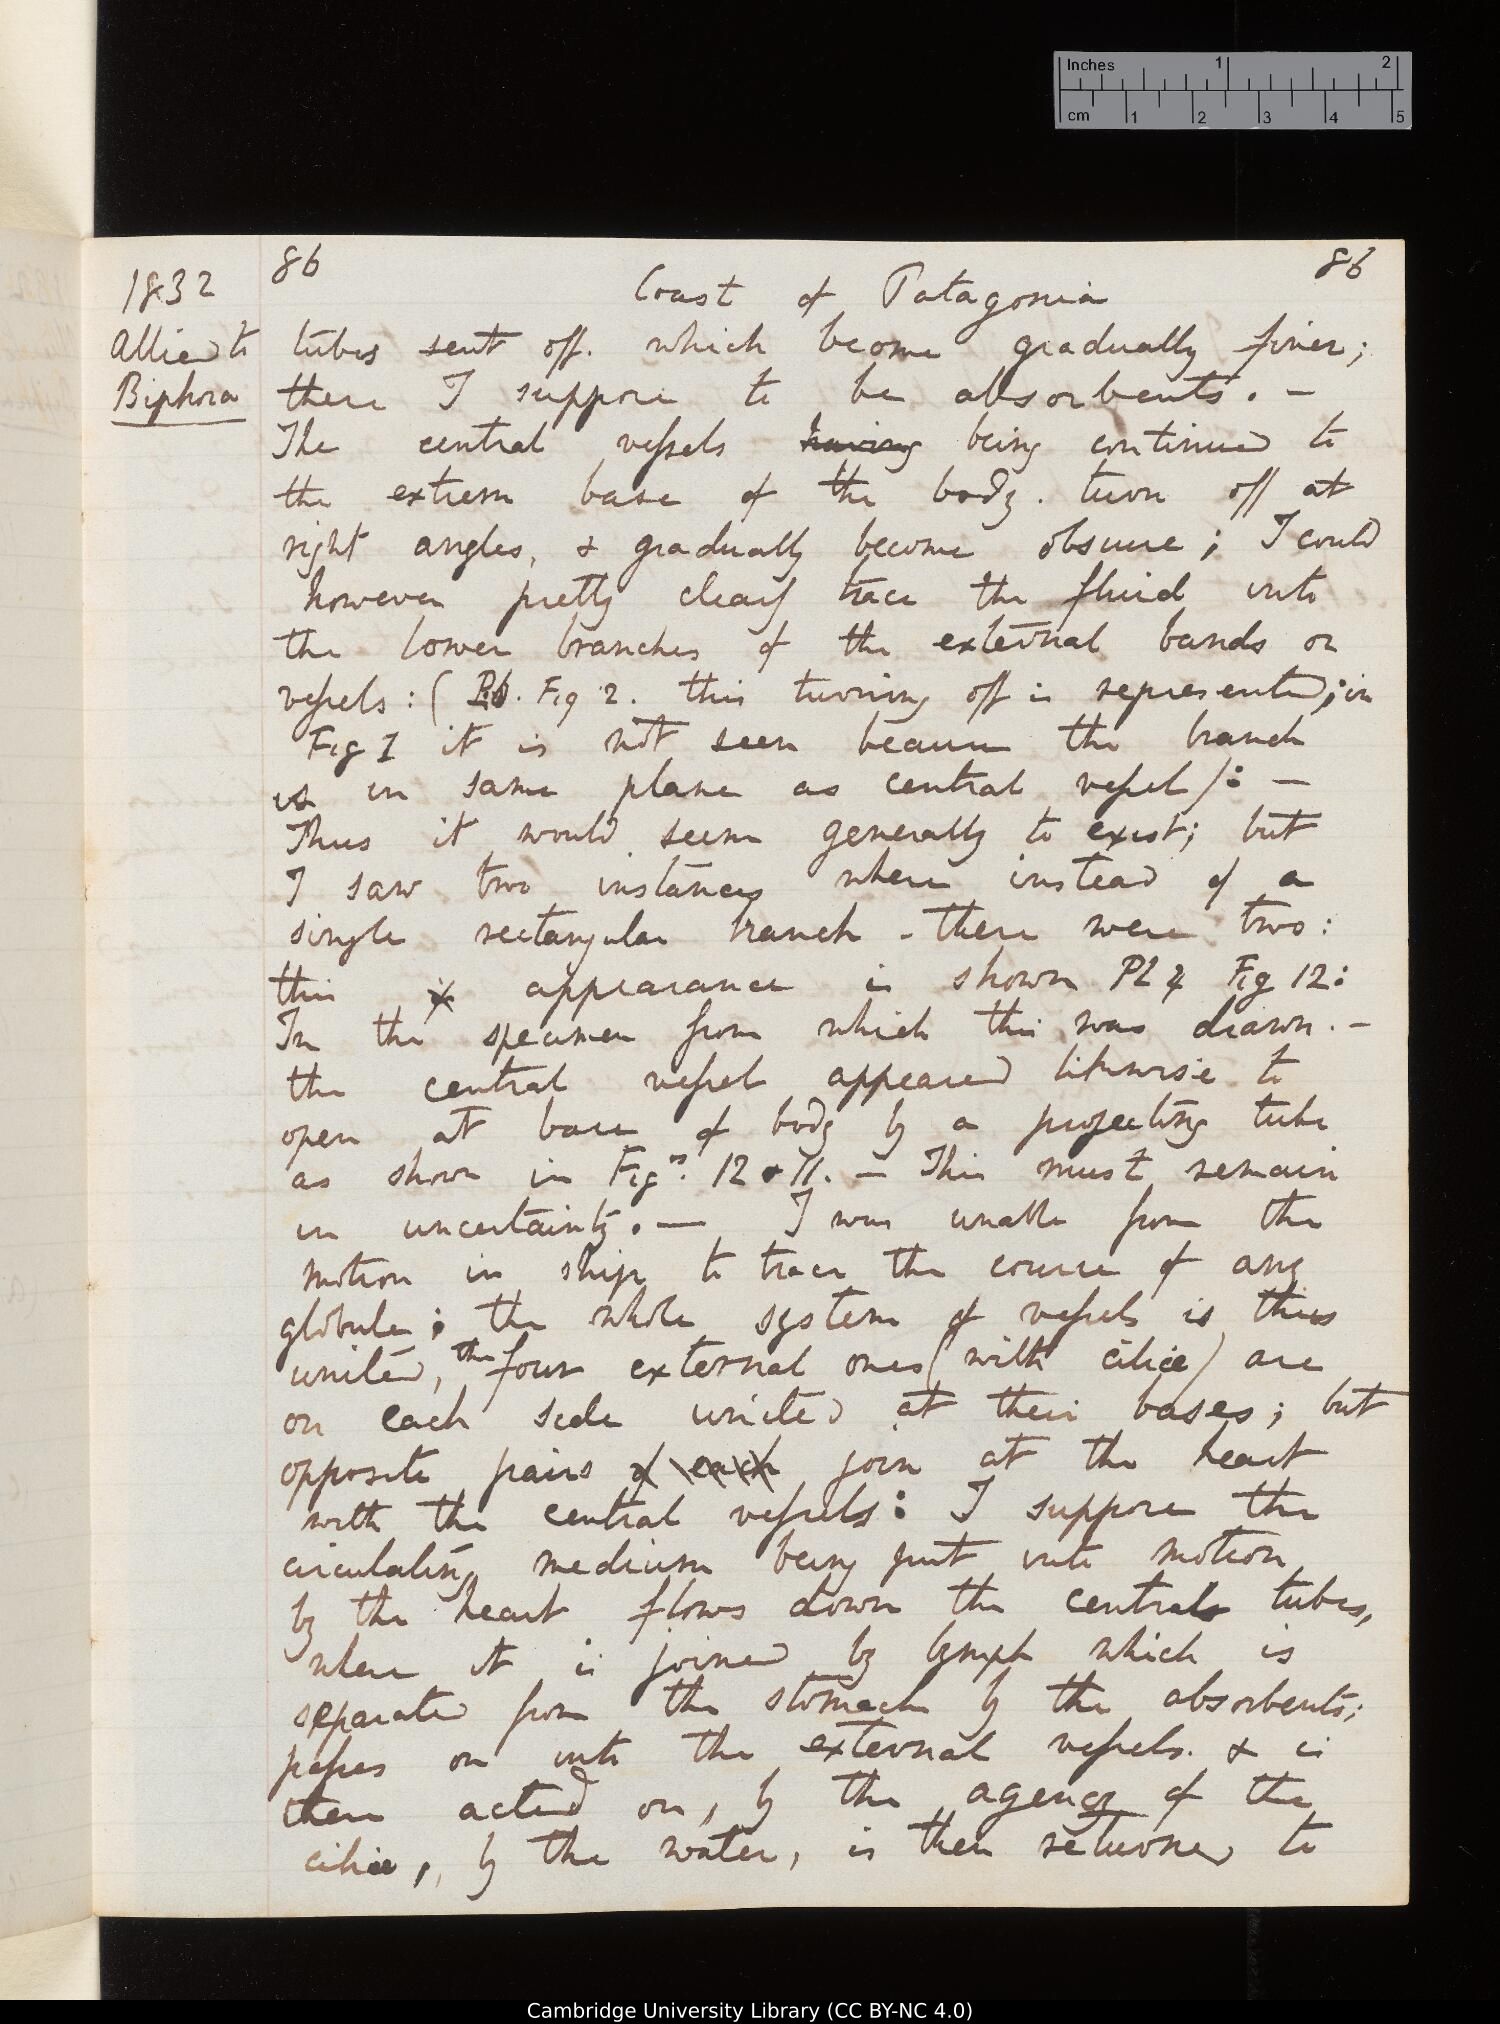 Inches 1 2
cm 1 2 3 4 5
86 86
1832 Coast of Patagonia
Allied to
Biphora
tubes sent off. which become gradually finer;
these I suppose to be absorbents. —
The central vessels having being continued to
the extreme base of the body. turn off at
right angles, & gradually become obscure; I could
however pretty clearly trace the fluid into
the lower branches of the external bands or
vessels: ( Fig 2. this turning off is represented; in
Fig 1 it is not seen because the branch
is in same plane as central vessel): —
Thus it would seem generally to exist; but
I saw two instances where instead of a
single rectangular branch - there were two:
this is appearance is shown Pl 4 Fig 12:
In the specimen from which this was drawn. —
the central vessel appeared likewise to
open at base of body by a projecting tube
as shown in Figs. 12 & 11. — This must remain
in uncertainty. — I was unable from the
motion in ship to trace the course of any
globule; the whole system of vessels is thus
united, the four external ones (with ciliæ) are
on each side united at their bases; but
opposite pairs of each join at the heart
with the central vessels: I suppose the
circulating medium being put into motion
by the heart flows down the central tubes,
where it is joined by lymph which is
separated from the stomach by the absorbents;
passes on into the external vessels. & is
there acted on, by the agency of the
ciliæ, by the water, is then returned to
Cambridge University Library (CC BY-NC 4.0)